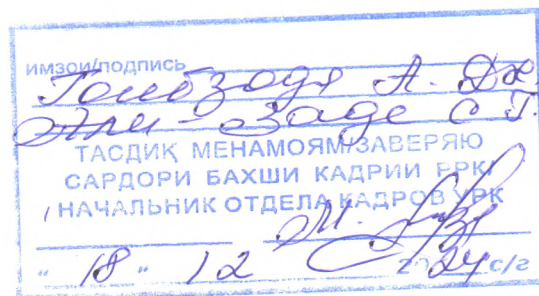 имзои/подпись
Гоибзода А. Дж.
Али-Заде С Г.
ТАСДИҚ МЕНАМОЯМ/ЗАВЕРЯЮ
САРДОРИ БАХШИ КАДРИИ РРК/
НАЧАЛЬНИК ОТДЕЛА КАДРОВ УРК
" 18 " 12 2024 с/г